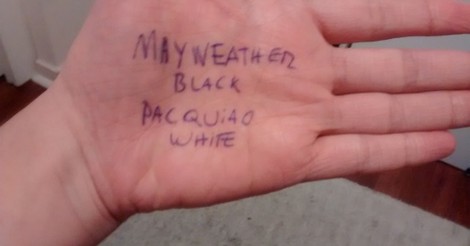 MAYWEATHER
BLACK
PACQUIAO
WHITE